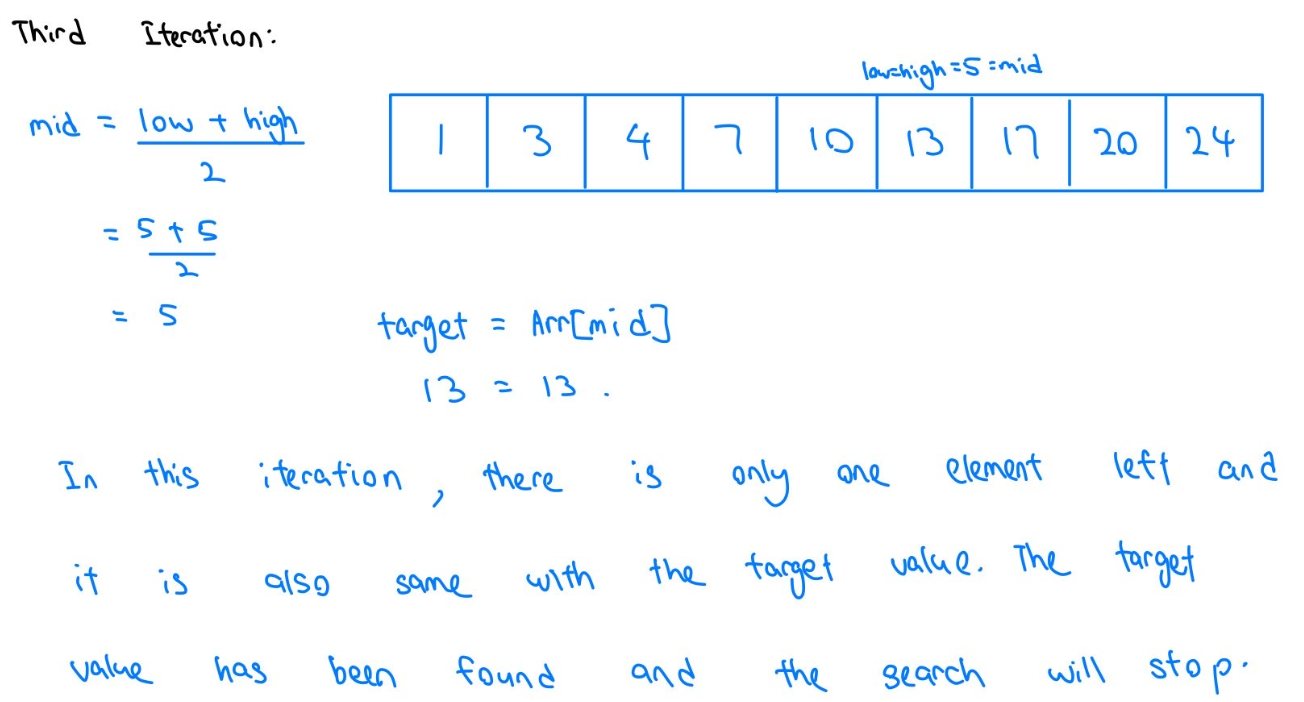 Third Iteration:
low=high=5=mid
mid = low + high
2
1 3 4 7 10 13 17 20 24
= 5 + 5
2
= 5
target = Arr[mid]
13 = 13 .
In this iteration, there is only one element left and
it is also same with the target value. The target
value has been found and the search will stop.